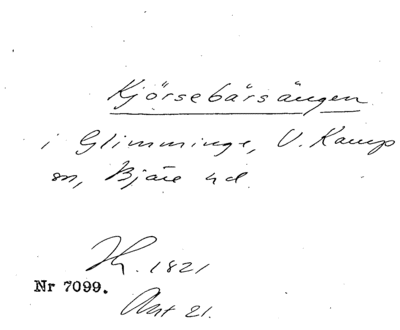 Kjörsebärsängen
i Glimminge, V. Karup
sn, Bjäre hd.
1821
Nr 7099.
Akt 21.